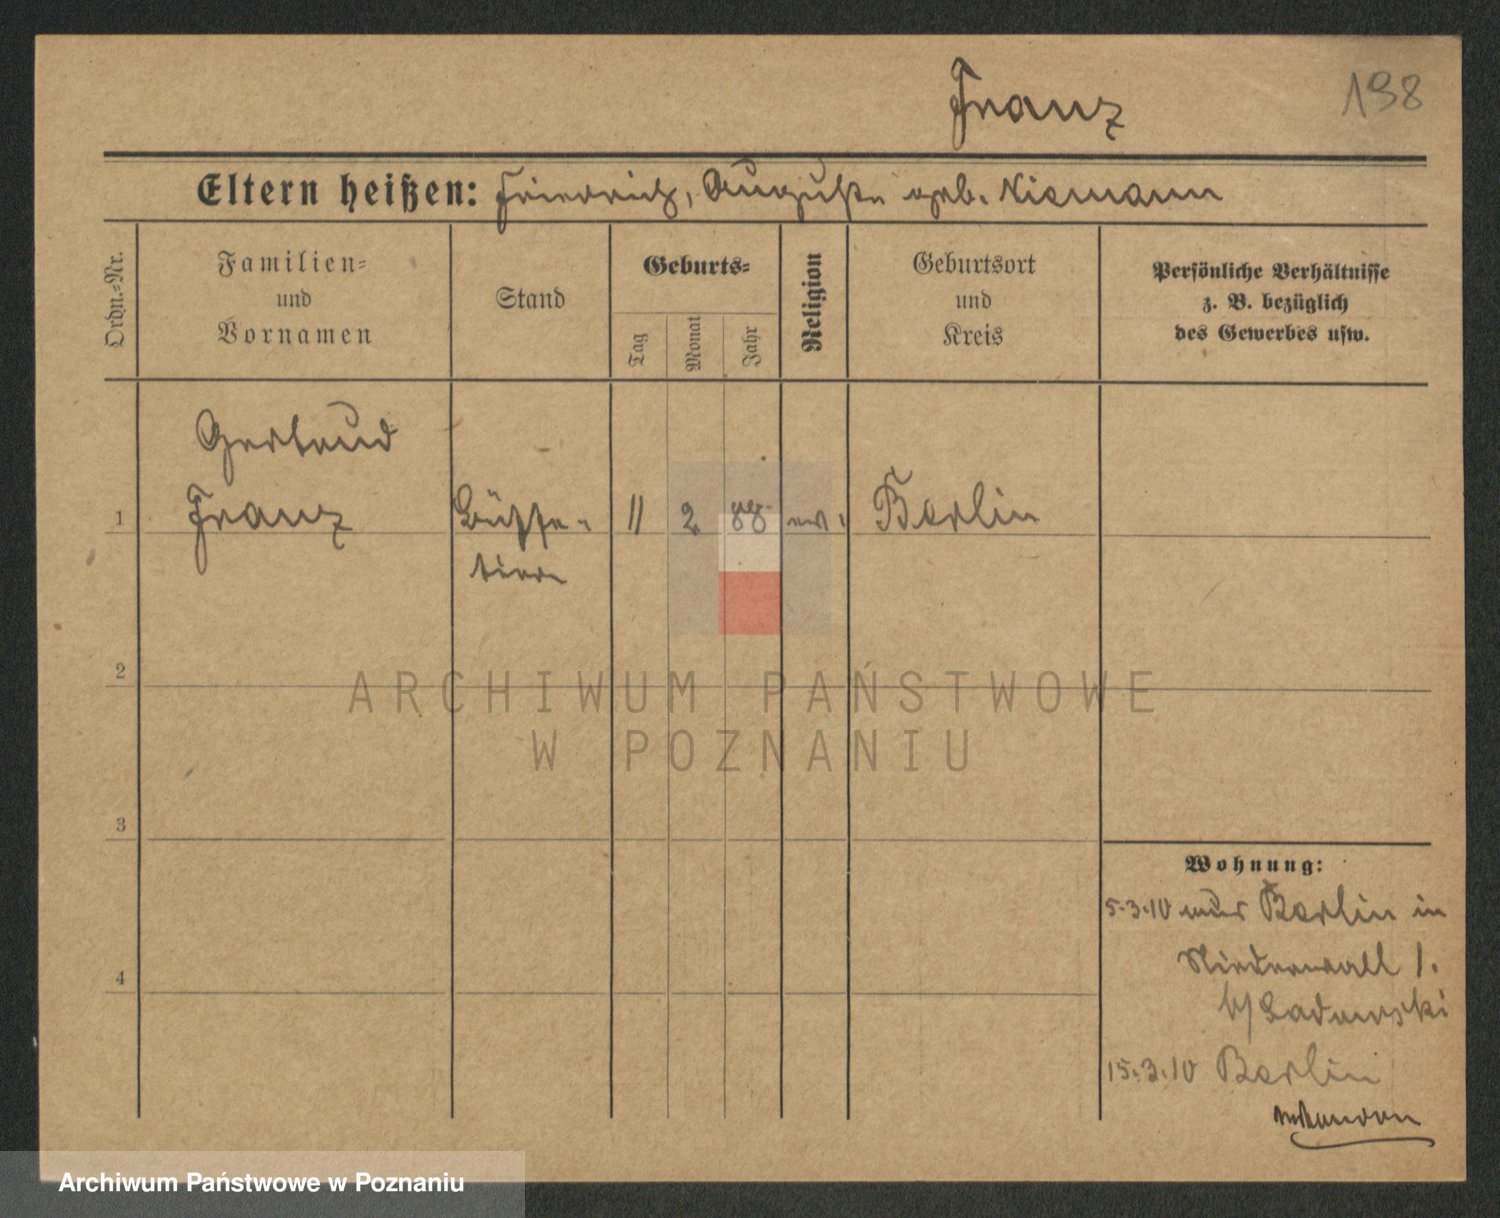 Franz 198
Eltern heißen: Friedrich, Auguste geb. Niemann
Ordn.-Nr.
Familien-
und
Vornamen
Stand
Geburts-
Tag
Monat
Jahr
Religion
Geburtsort
und
Kreis
Persönliche Verhältnisse
z. B. bezüglich
des Gewerbes usw.
Gertrud
1 Franz Büffe- 11 2 88 ev. Berlin
tiere
2
ARCHIWUM PAŃSTWOWE
W POZNANIU
3
4
Wohnung:
5.3.10 Berlin in
Niederwall 1.
b/
15.3.10 Berlin
Archiwum Państwowe w Poznaniu